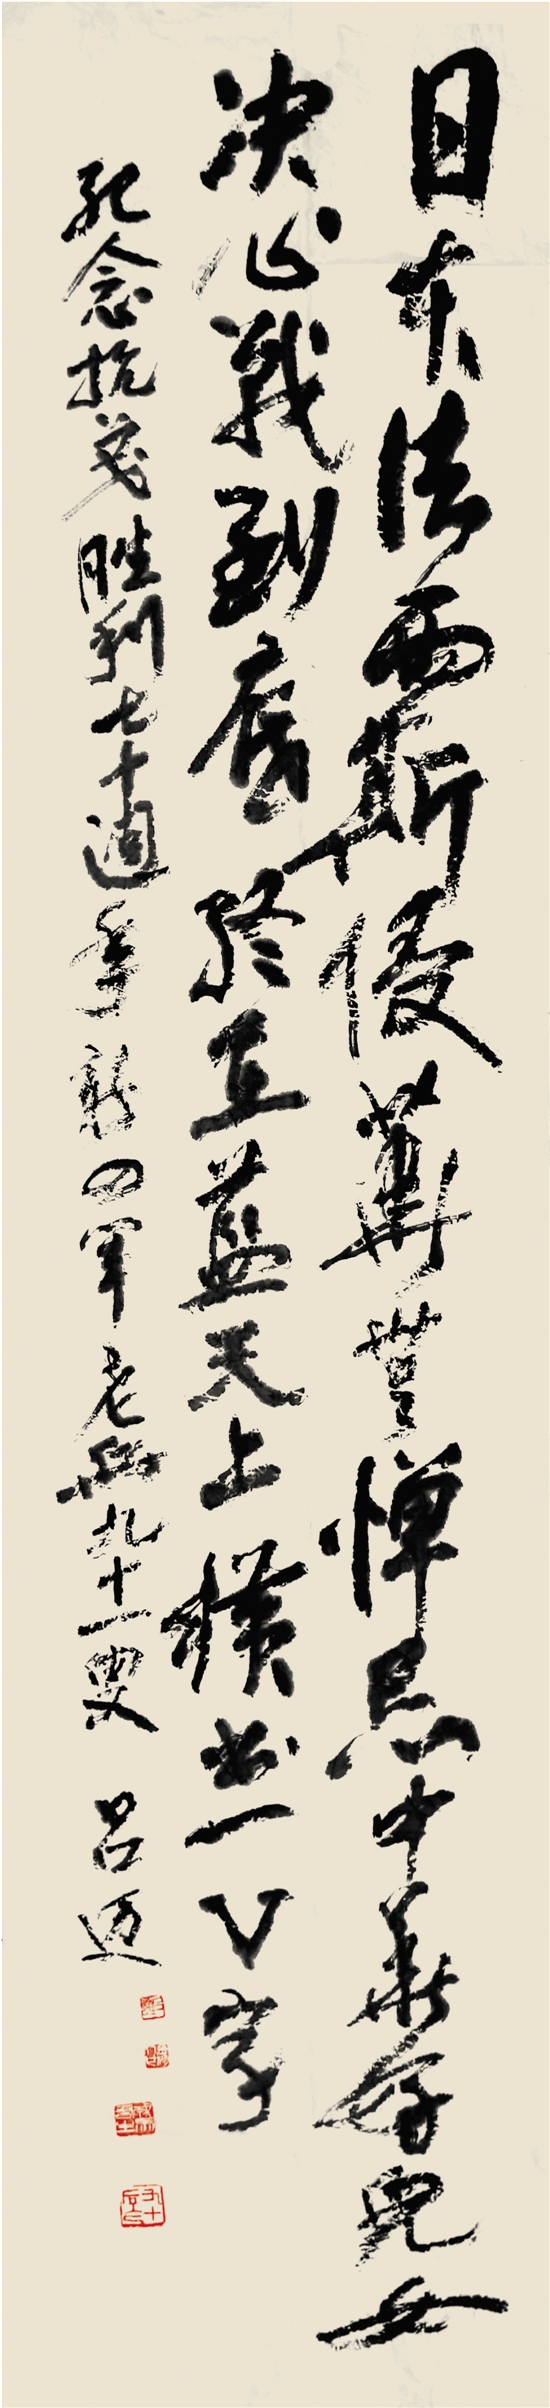 日本法西斯侵华岂惮忌中华好儿女
决心战到底终在蓝天上横出一V字
纪念抗战胜利七十週年新四军老兵九十一叟
吕迈